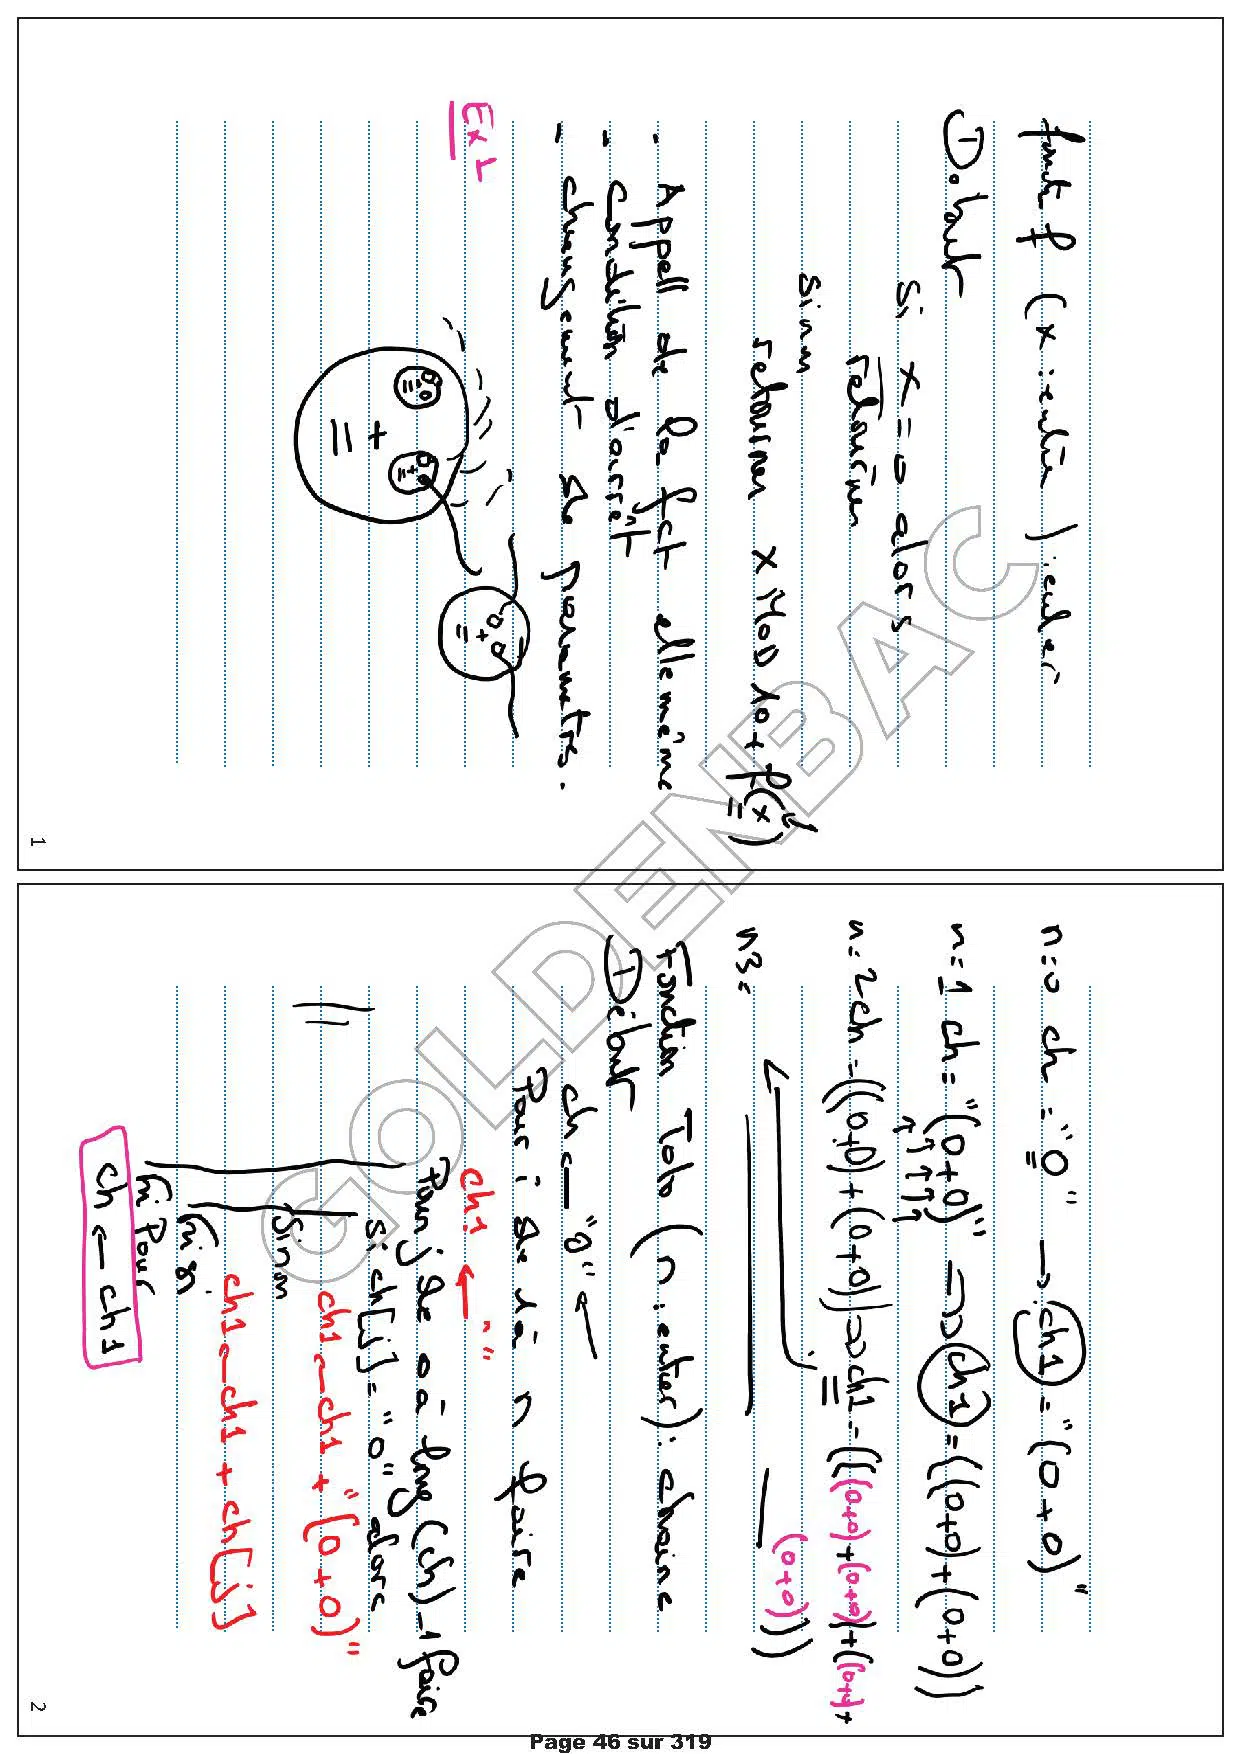 fonct f (x : entier) : entier
① Début
Si x = 0 alors
retourner
Sinon
retourner x MOD 10 + f(x)
- Appell de la fct elle même
- condition d'arrêt
- changement de parametrs.
Ex 1
+
=
+
=
1
n=0 ch = "0" → ch1 = "(0+0)"
n=1 ch = "(0+0)" → ch1 = ((0+0)+(0+0))
n=2 ch = ((0+0)+(0+0)) → ch1 = (((0+0)+(0+0))+((0+0)+
(0+0)))
n3 =
Fonction Toto (n : entier) : chaine
① Début
ch ← "0" ←
Pour i de 1 à n faire
ch1 ← ""
Pour j de 0 à long(ch)-1 faire
Si ch[j] = "0" alors
ch1 ← ch1 + "(0+0)"
Sinon
ch1 ← ch1 + ch[j]
Fin Si
Fin Pour
ch ← ch1
2
GOLDENBAC
Page 46 sur 319